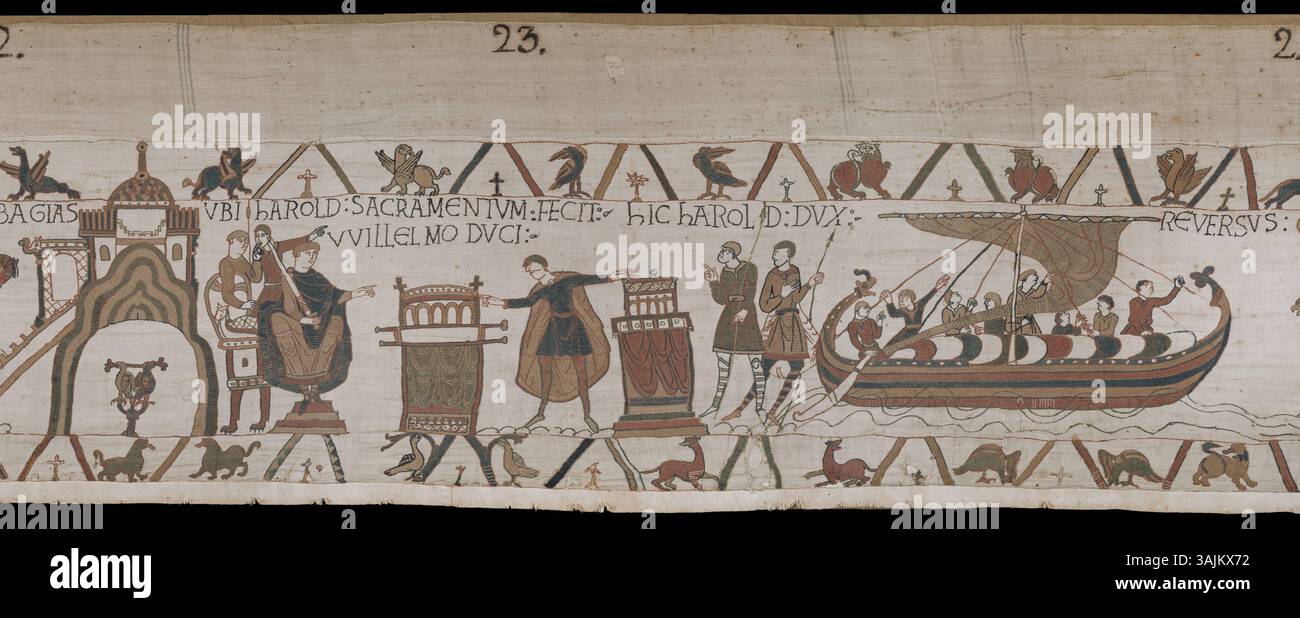 2.
23.
2
BAGIAS
UBI hAROLD: SACRAMENTUM: FECIT:-
VVILLELMO DUCI:-
hIC hAROLD: DUX:-
REVERSUS:
alamy
Image ID: 3AJKX72
www.alamy.com